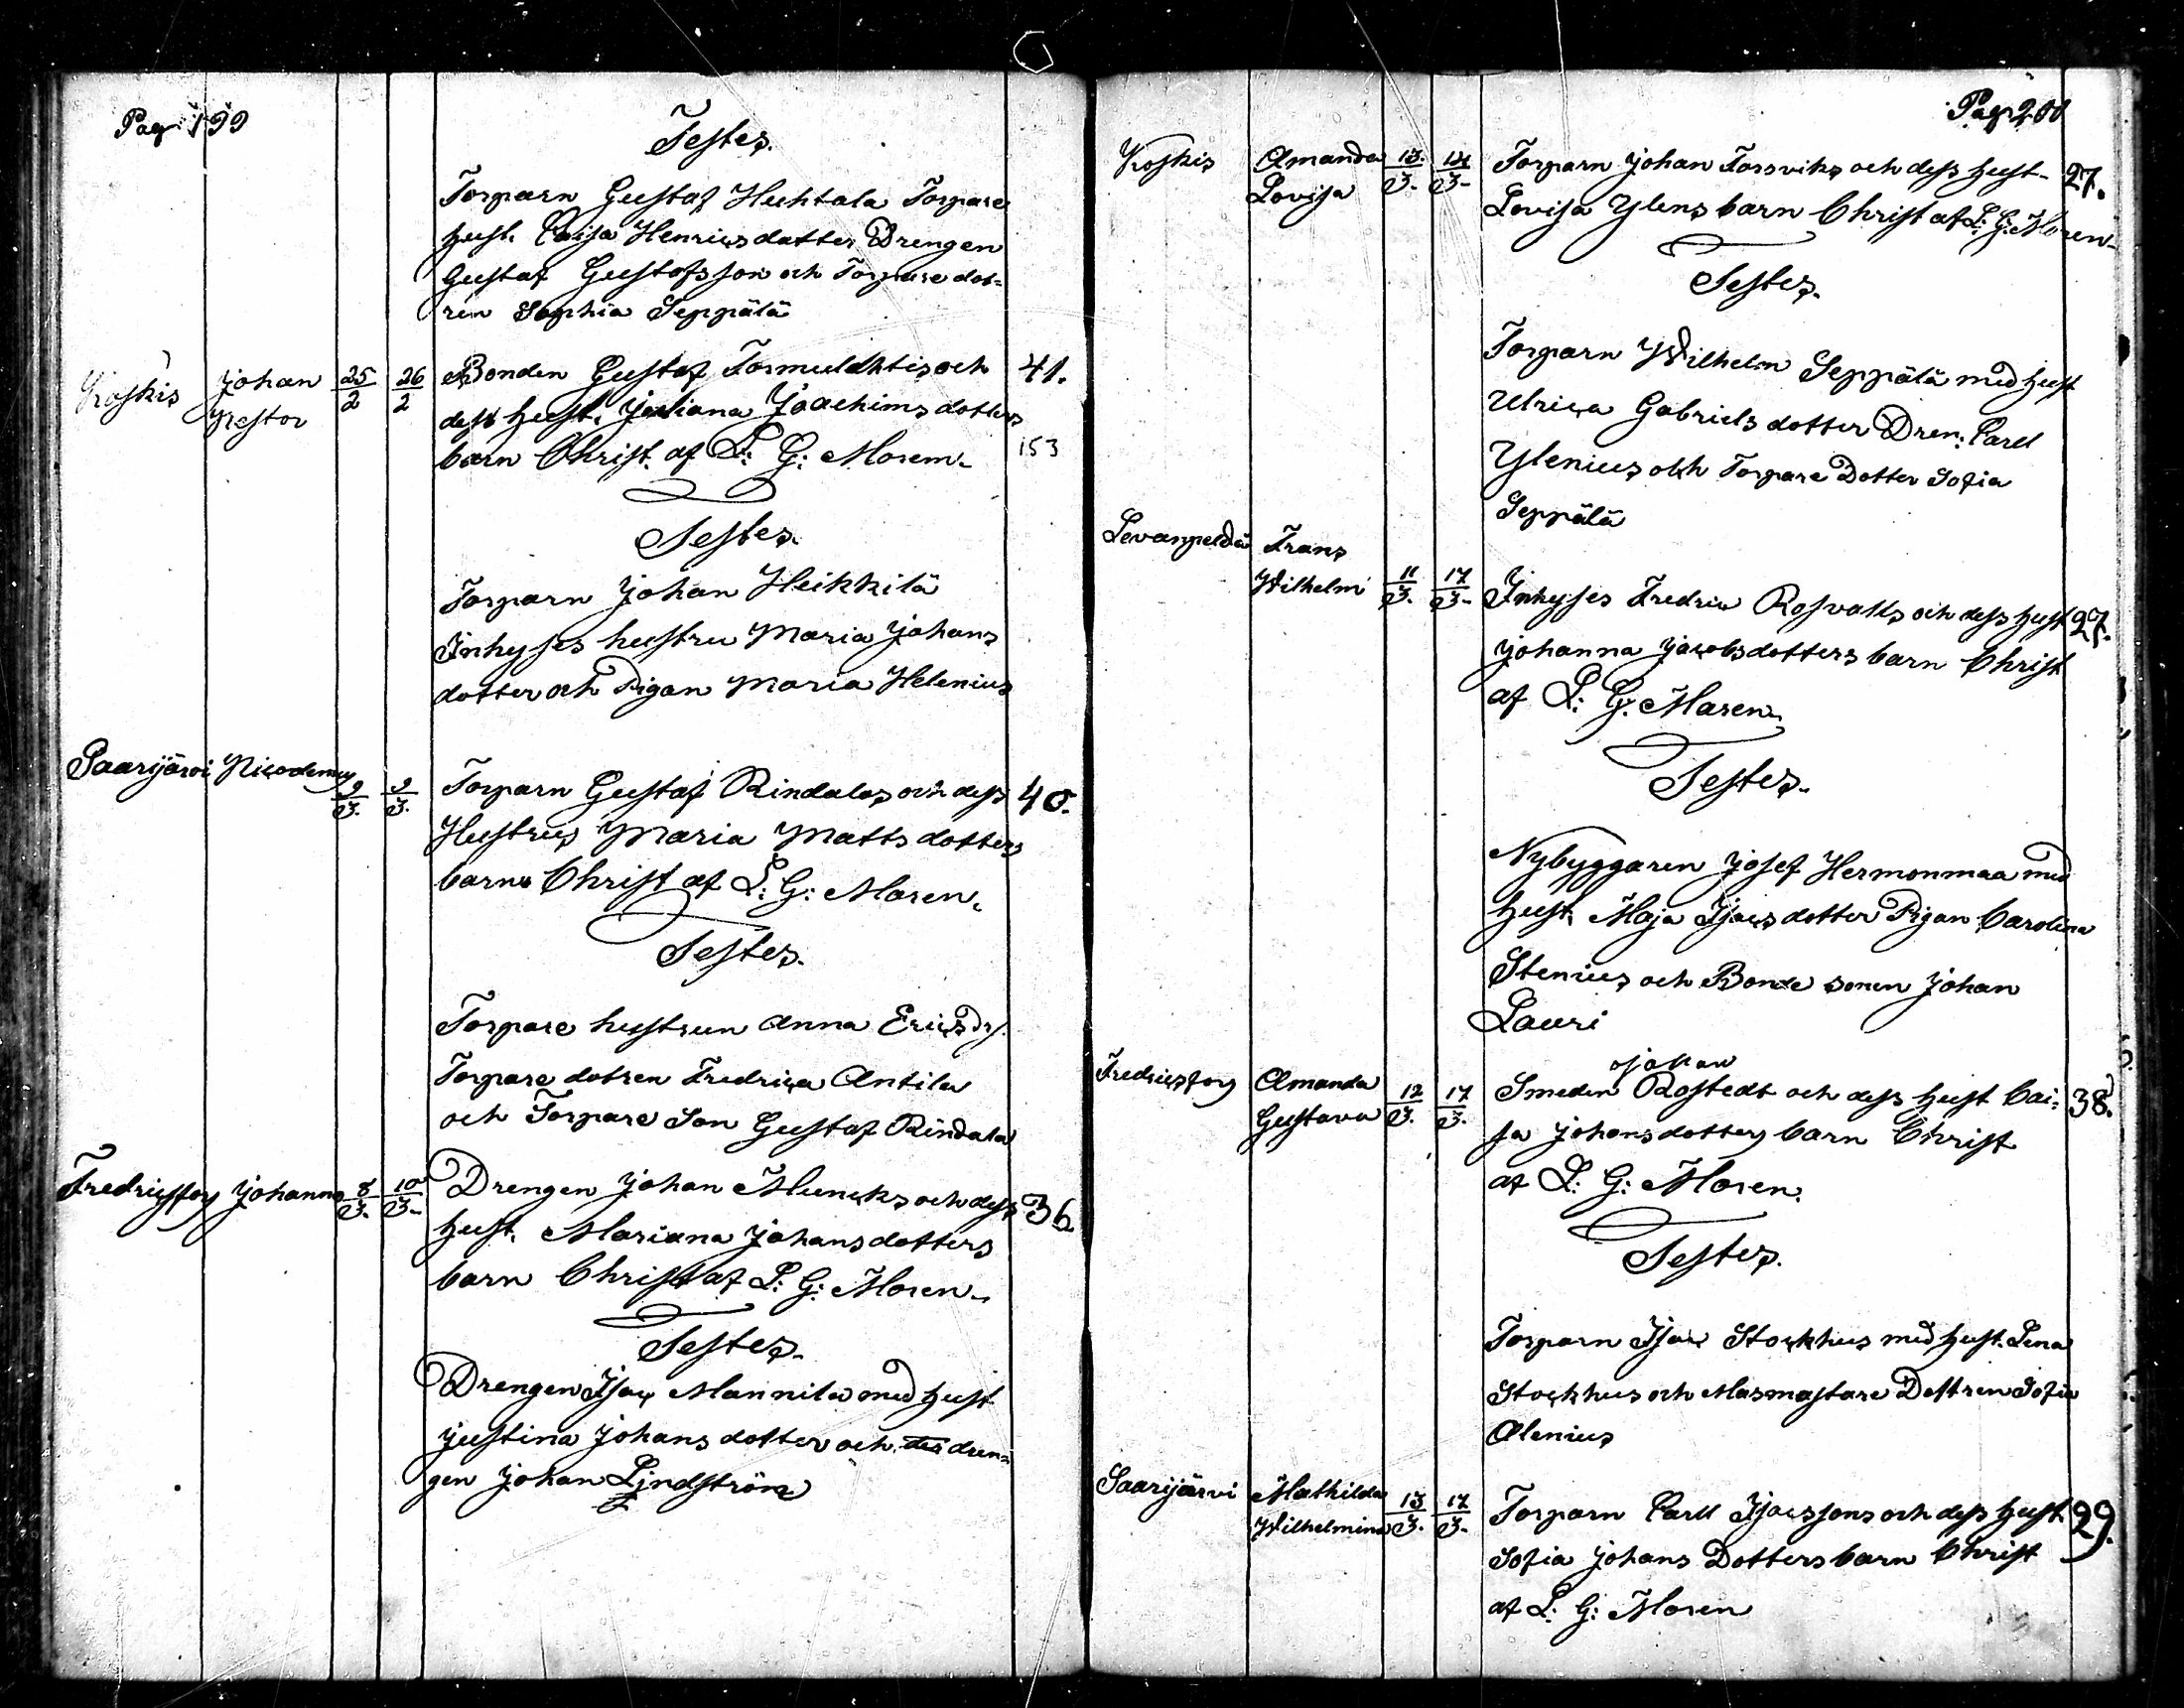 Pag 199
Testes.
Torparn Gustaf Huhtala Torpare
hust. Caisa Henricsdotter Drengen
Gustaf Gustafsson och Torpare dot=
ren Sophia Seppälä
Koskis Johan Nestor 25/2 26/2 Bonden Gustaf Tormulahtis och 41.
dess hust. Juliana Joachimsdotters
barn Christ. af L: G: Moren. 153
Testes.
Torparn Johan Heikkilä
Inhyses hustru Maria Johans
dotter och Pigan Maria Helenius
Saarijärvi Nicodemus 9/3. 9/3. Torparn Gustaf Rindalas och dess 40.
Hustrus Maria Matts dotters
barn Christ af L: G: Moren.
Testes.
Torpare hustrun Anna Ericsdr.
Torpare dotren Fredrica Antila
och Torpare Son Gustaf Rindala
Fredricsfors Johanna 8/3. 10/3. Drengen Johan Muncks och dess 36
hust. Mariana Johansdotters
barn Christ af L: G: Moren.
Testes.
Drengen Isac Mannila med hust
Justina Johans dotter och dren=
gen Johan Lindström
Pag 200
Koskis Amanda Lovisa 13./3. 14/3. Torparn Johan Forsviks och dess hust 27.
Lovisa Ylens barn Christ af L: G. Moren
Testes.
Torparn Wilhelm Seppälä med hust
Ulrica Gabriels dotter Dren: Carl
Ylenius och Torpare Dotter Sofia
Seppälä
Levanpeldä Frans Wilhelm 11/3. 17/3. Inhyses Fredric Rosvalls och dess hust 27.
Johanna Jacobsdotters barn Christ
af L: G. Moren
Testes.
Nybyggaren Josef Hermonmaa med
hust. Maja Isacs dotter Pigan Carolina
Stenius och Bonde sonen Johan
Lauri
Johan
Fredricsfors Amanda Gustava 12/3. 17/3. Smeden Rostedt och dess hust Cai= 38.
sa Johansdotters barn Christ
af L: G: Moren.
Testes.
Torparn Isac Stockhus med hust. Lena
Stockhus och Masmastare Dottren Sofia
Alenius
Saarijärvi Mathilda Wilhelmina 13/3. 17/3. Torparn Carl Isacssons och dess hust 29.
Sofia Johans Dotters barn Christ
af L: G: Moren